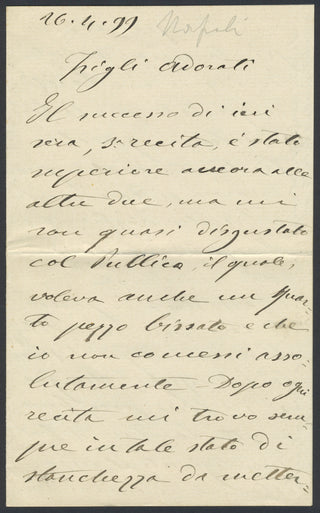 26.4.99 Napoli
Figli adorati
Il successo di ieri
sera, 3ª recita, é stato
superiore ancora alle
altre due, ma mi
son quasi disgustato
col Pubblico, il quale,
voleva anche un quar-
to pezzo bissato e che
io non concessi asso-
lutamente - Dopo ogni
recita mi trovo sem-
pre in tale stato di
stanchezza da metter-